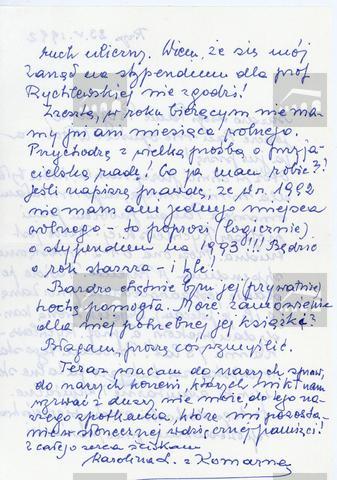 ruch uliczny. Wiem, że się mój
Zarząd na stypendium dla prof
Rychlewskiej nie zgodzi!
Zresztą, w roku bieżącym nie ma
my już ani miesiąca wolnego.
Przychodzę z wielką prośbą o przyja
cielską radę! Co ja mam robić?!
Jeśli napiszę prawdę, że w r. 1992
nie mam ani jednego miejsca
wolnego - to poprosi (logicznie)
o stypendium na 1993!!! Będzie
o rok starsza - i
Bardzo chętnie bym jej (prywatnie)
pomogła. Może zamówienie
dla niej potrzebnej jej książki?
Błagam, proszę coś wymyślić.
Teraz wracam do naszych spraw,
do naszych korzeni, których nikt nam
wyrwać z duszy nie może, do tego na
szego spotkania, które mi pozosta
nie w słonecznej wdzięcznej pamięci!
Z całego serca ściskam
Karolina L. z Komarna